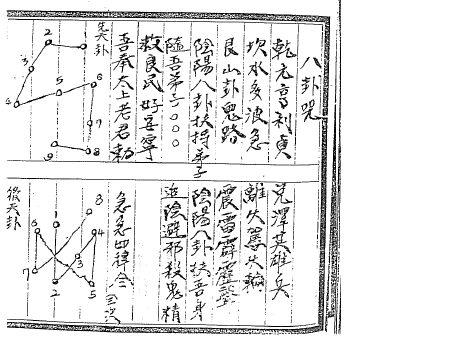 八卦咒
乾元亨利貞
兌澤英雄兵
坎水多波急
離火駕火輪
艮山卦鬼路
震雷霹靂聲
陰陽八卦扶持弟子
陰陽八卦扶吾身
隨吾弟子○○○
追陰避邪殺鬼精
救良民好安寧
吾奉太上老君勅
急急如律令 三次
先天卦
2
3
4
5
6
7
8
9
後天卦
8
1
6
4
3
7
2
5